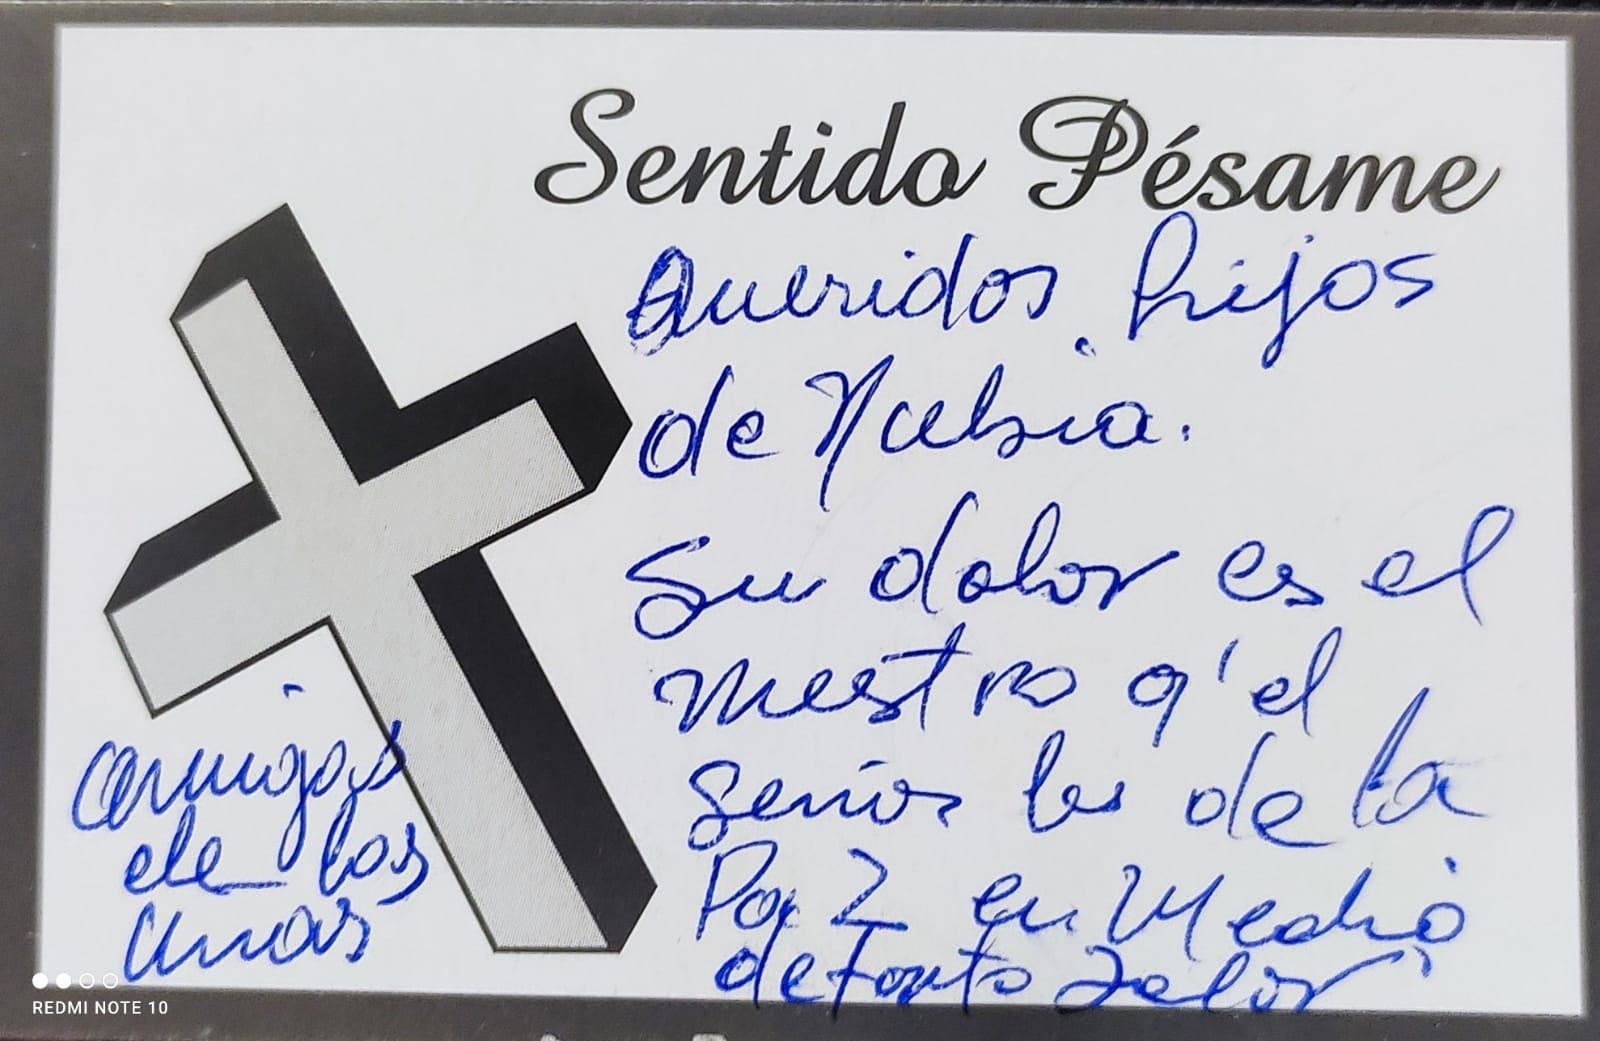 Sentido Pésame
Queridos hijos
de Nubia.
Su dolor es el
nuestro q' el
Señor les de la
Paz en Medio
de tanto dolor
amigos
de los
REDMI NOTE 10